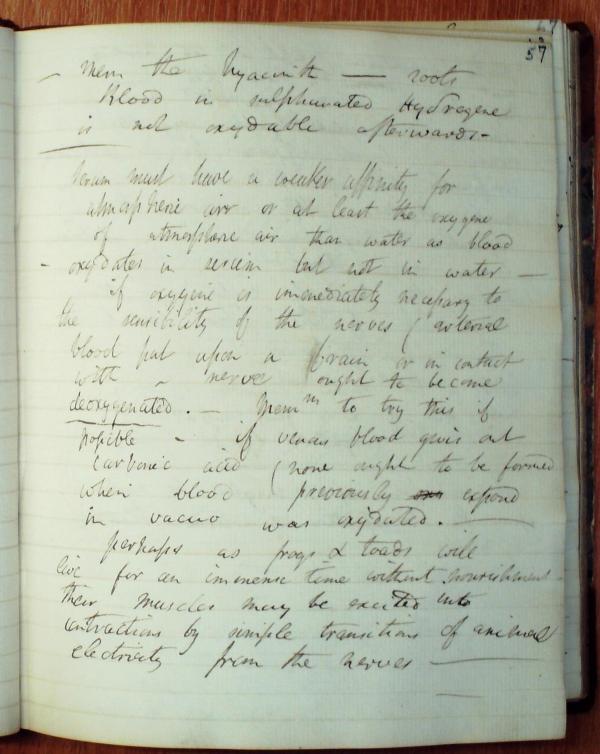 57
— Mem the hyacinth — roots
Blood in sulphurated Hydrogene
is not oxydable afterwards -
Serum must have a weaker affinity for
atmospheric air or at least the oxygene
of atmospheric air than water as blood
- oxydates in serum but not in water —
if oxygene is immediately necessary to
the sensibility of the nerves (arterial
blood put upon a brain or in contact
with a nerve ought to become
deoxygenated. — Mem to try this if
possible - if venous blood gives out
carbonic acid (none ought to be formed
when blood previously exposed
in vacuo was oxydated. —
perhaps as frogs & toads will
live for an immense time without nourishment
their muscles may be excited into
contractions by simple transitions of animal
electricity from the nerves —